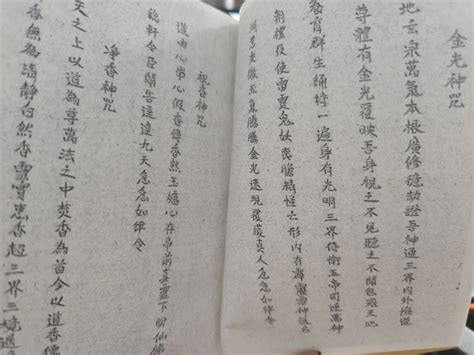 金光神咒
地玄宗萬氣本根廣修億劫證吾神通三界內外惟道
尊體有金光覆映吾身視之不見聽之不聞包羅天地
養育群生誦持一遍身有光明三界侍衛五帝司迎萬神
朝禮役使雷霆鬼妖喪膽精怪亡形內有霹靂雷神隱名
洞慧交徹五氣騰騰金光速現覆護真人急急如律令
祝香神咒
道由心學心假香傳香爇玉爐心存帝前真靈下盼仙旆
臨軒令臣關告逕達九天急急如律令
淨香神咒
天之上以道為尊萬法之中焚香為首今以道香德
香無為清靜自然香靈寶惠香超三界三境遙